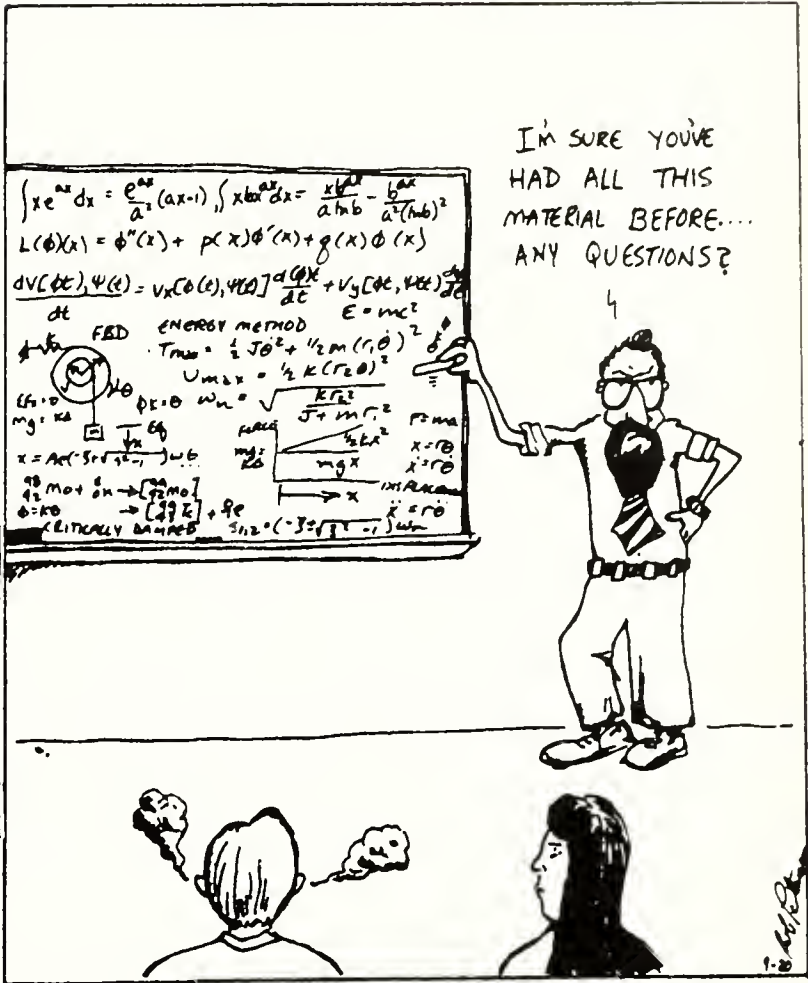 I'M SURE YOU'VE
HAD ALL THIS
MATERIAL BEFORE....
ANY QUESTIONS?
∫xe^ax dx = e^ax/a² (ax-1), ∫xb^ax dx = xb^ax/(a ln b) - b^ax/(a²(ln b)²)
L(φ)(x) = φ''(x) + p(x)φ'(x) + q(x)φ(x)
dV[φt), ψ(t)/dt = Vx[φ(t), ψ(t)] d(φ)t/dt + Vy[φt, ψ(t)]
E = mc²
FBD ENERGY METHOD
Tmax = ½ Jθ̇² + ½ m(r₁θ̇)²
Umax = ½ k(r₂θ)²
ωn = √(kr₂²/(J + mr₁²))
mg = KΔ
FORCE
½kx²
mg = KΔ
mgx
x
F=ma
x=rθ
ẋ=rθ̇
ẍ=rθ̈
CRITICALLY DAMPED S₁,₂ = (-ζ±√(ζ²-1))ωn
9-20